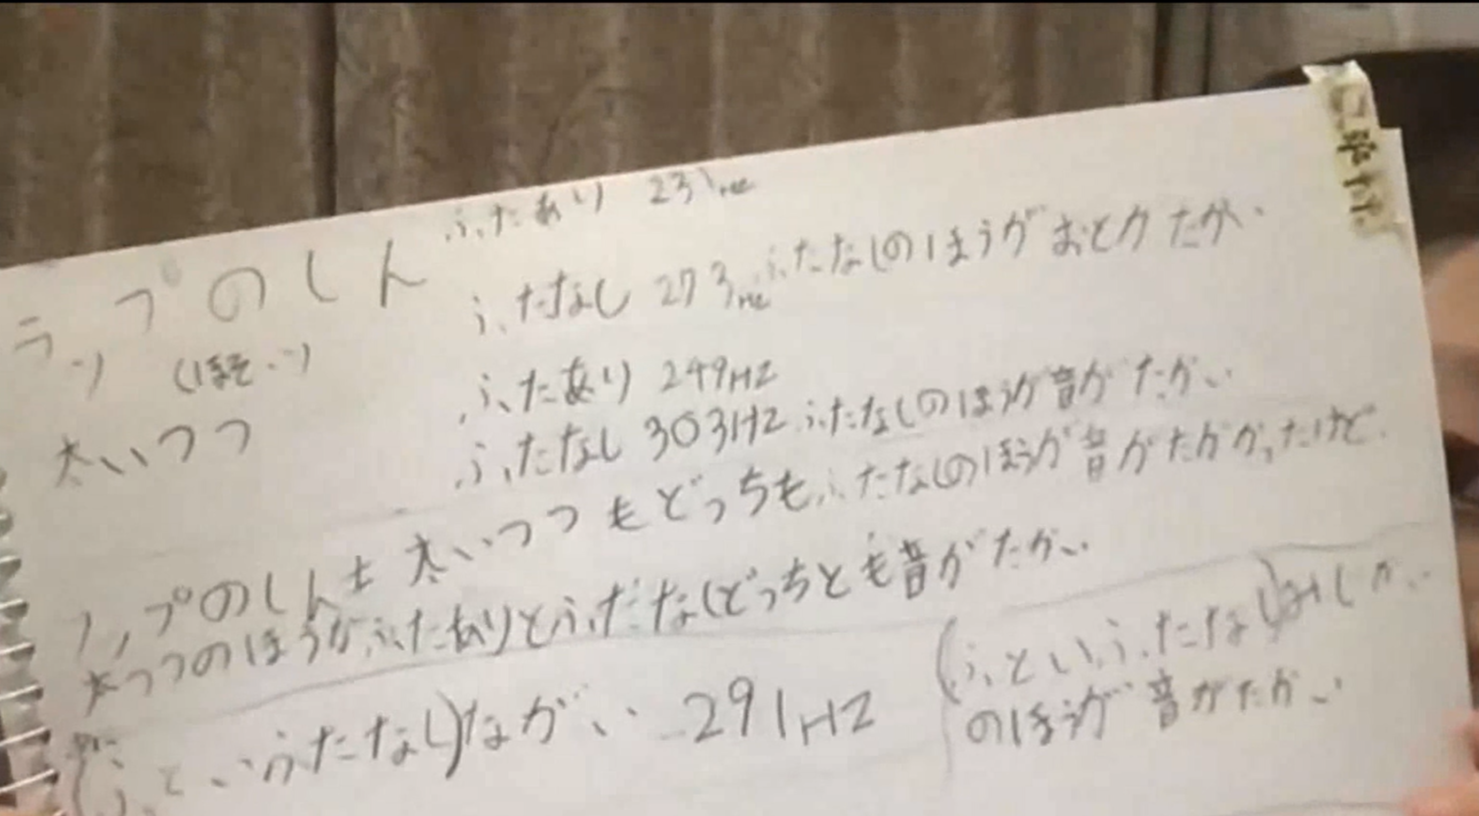 ふたあり 231Hz
ラップのしん
ふたなし 273Hz ふたなしのほうがおとがたかい
(ほそい)
ふたあり 249HZ
太いつつ
ふたなし 303HZ ふたなしのほうが音がたかい
ラップのしんも太いつつもどっちもふたなしのほうが音がたかかったけど
太つつのほうがふたありとふたなしどっちとも音がたかい
(ふといふたなし)ながい 291HZ
(ふといふたなし)みじかい
のほうが音がたかい